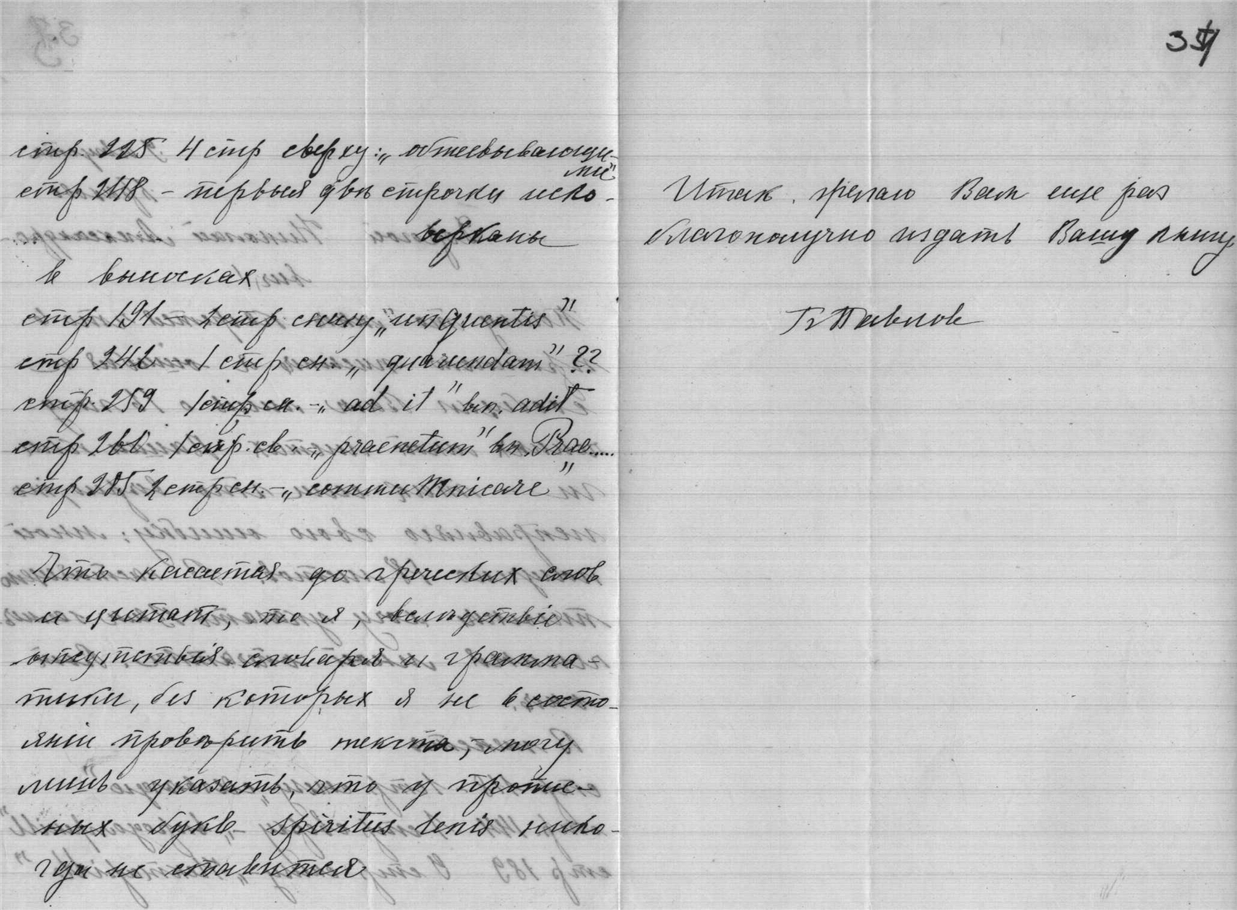 стр 225 4 стр сверху: „общевывающи-
ми"
стр 248 – первыя двѣ строчки иско-
верканы
в выноскахъ
стр 191 – 2 стр снизу „unguentis"
стр 242 1 стр сн „quamendam" ??
стр. 259 1 стр сн. – „ad it" вм. adit
стр 261 1 стр. св „praenetum" вм. Prae.....
стр 285 2 стр сн. – „communicare"
Что касается до греческих слов
и цитат, то я, вслѣдствіе
отсутствія словаря и грамма-
тики, без которых я не в состо-
яніи провѣрить текста, – могу
лишь указать, что у пропис-
ных букв spiritus lenis нико-
гда не ставится
34
Итак, желаю Вам еще раз
благополучно издать Вашу книгу
Б Павлов